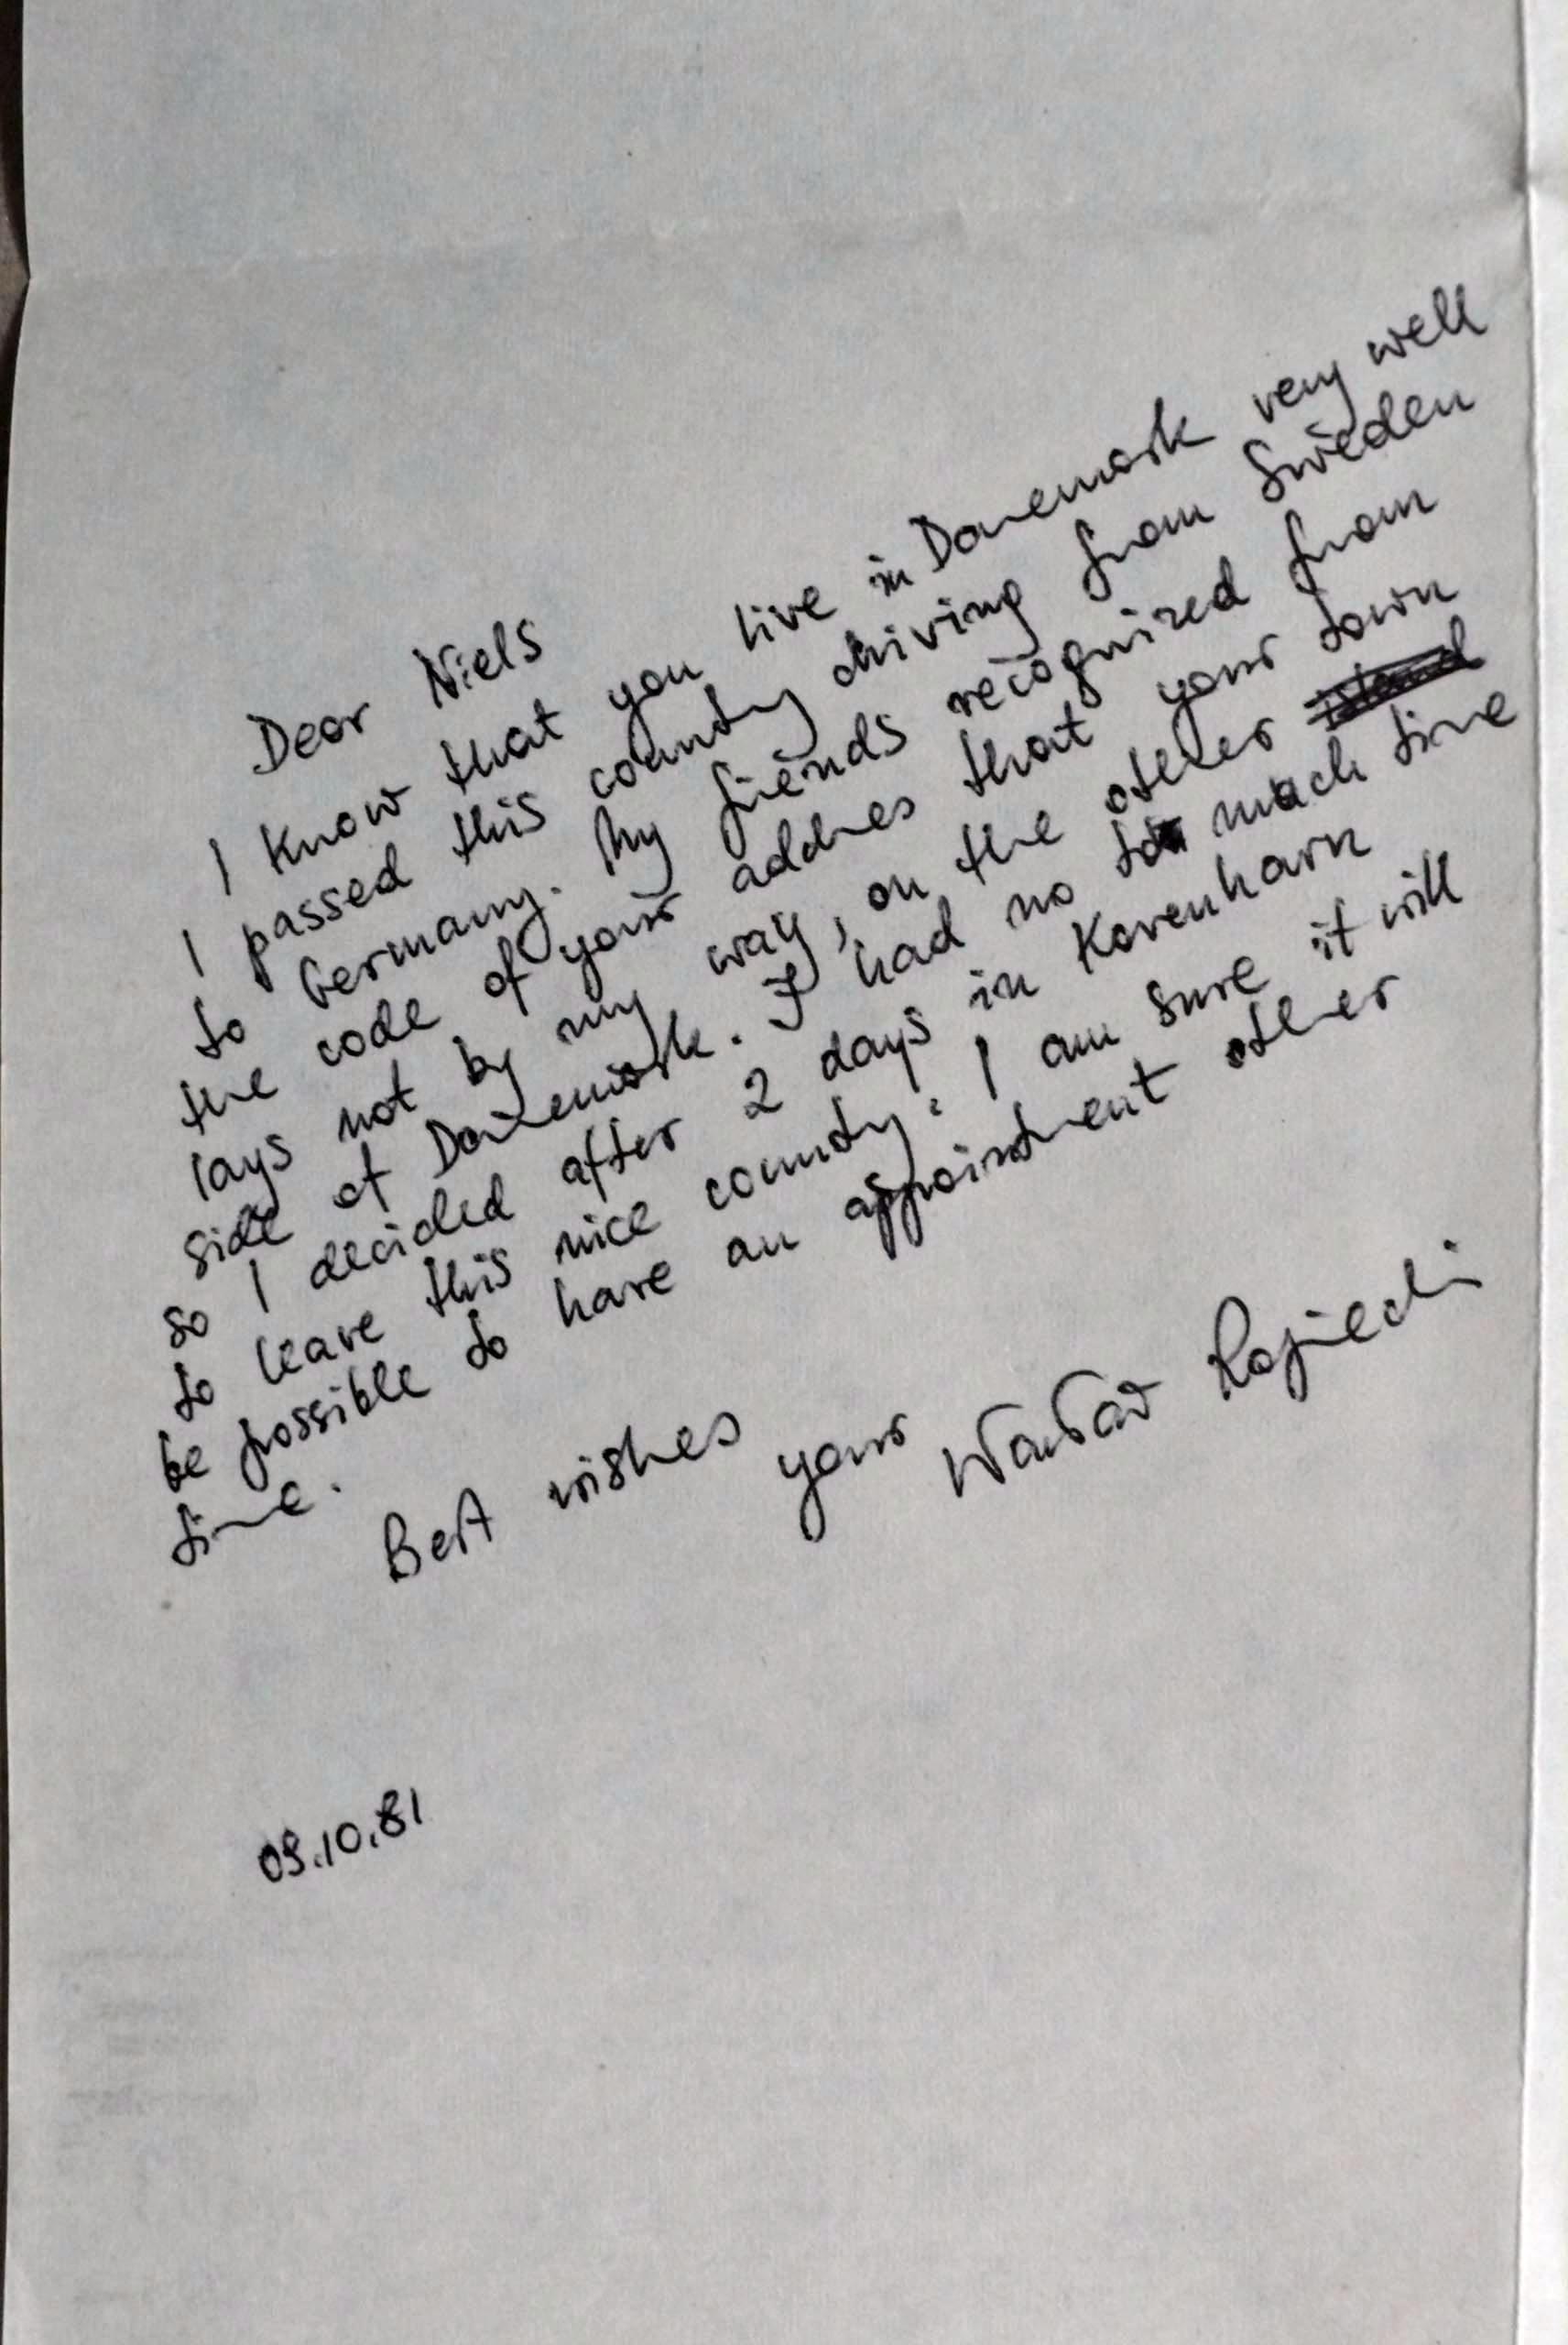 Dear Niels
I know that you live in Danemark very well
I passed this country driving from Sweden
to Germany. My friends recognized from
the code of your addres that your town
lays not by my way, on the other
side of Danemark. I had no to much time
so I decided after 2 days in Kovenharn
to leave this nice country. I am sure it will
be possible to have an appointment other
time.
Best wishes your
09.10.81